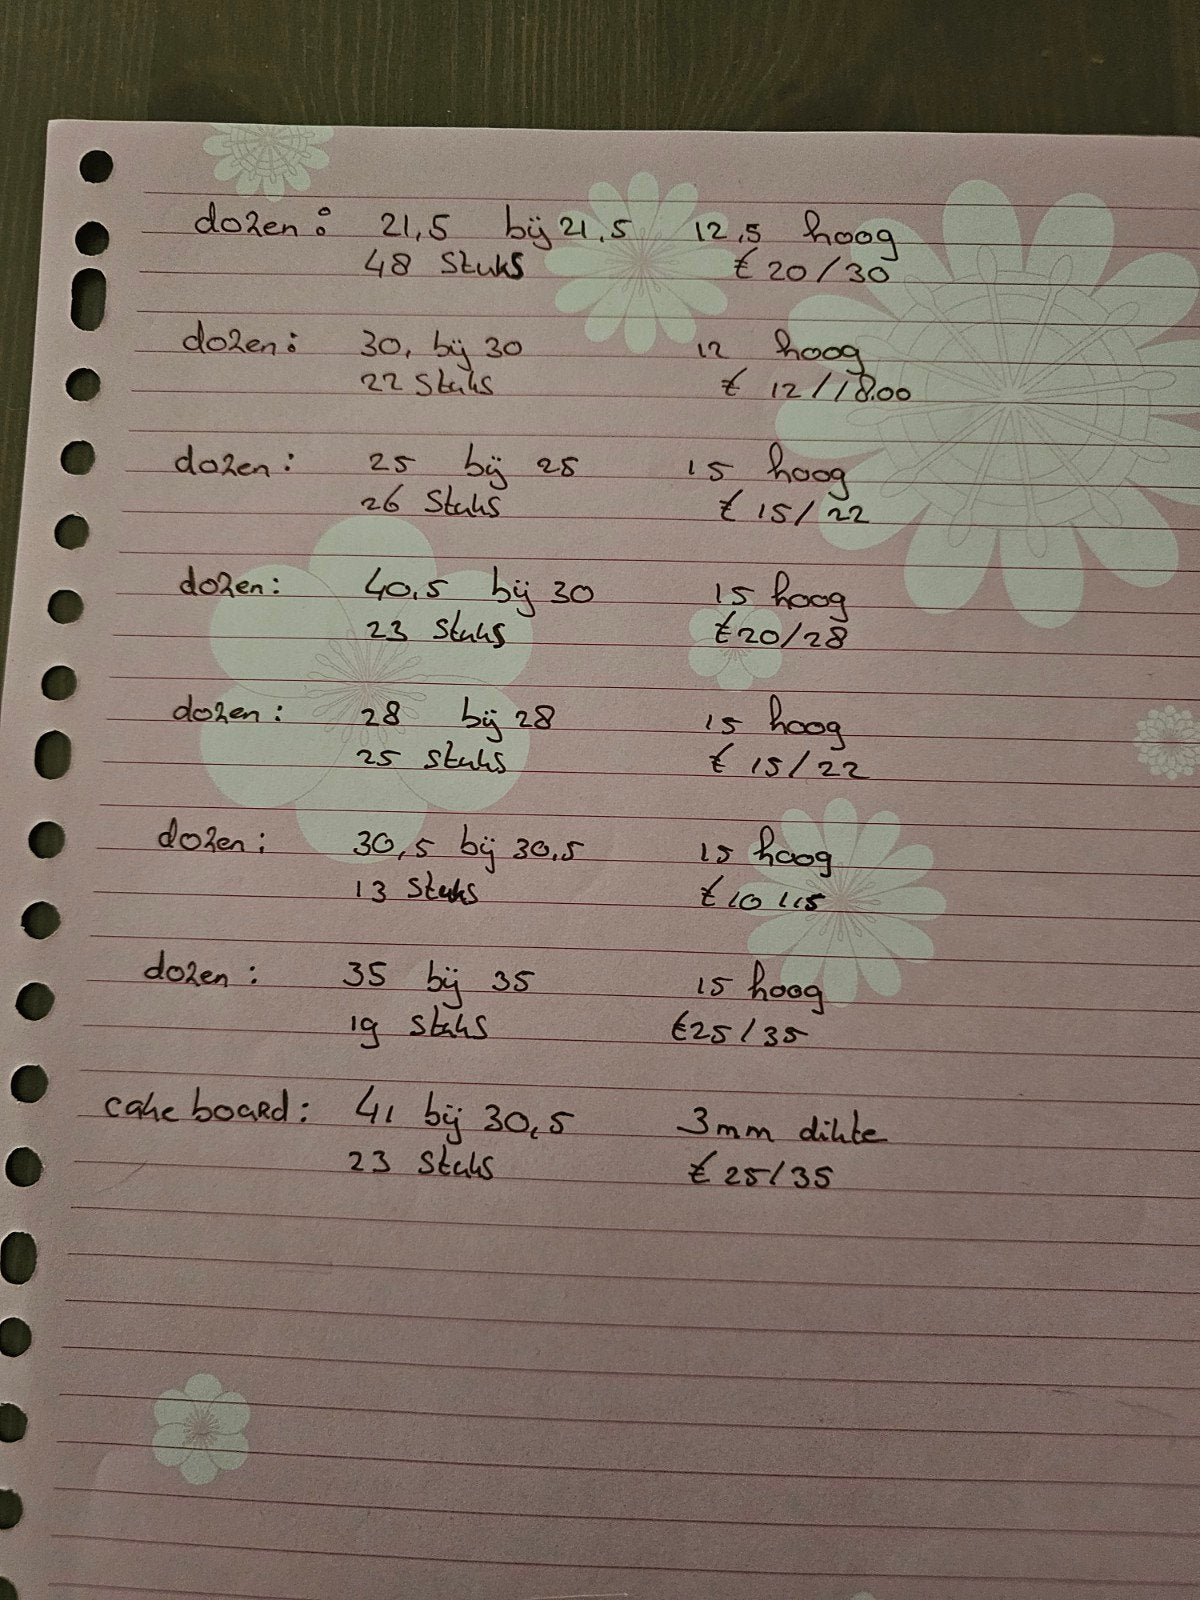 dozen: 21,5 bij 21,5 12,5 hoog
48 stuks € 20/30
dozen: 30, bij 30 12 hoog
22 stuks € 12/18.00
dozen: 25 bij 25 15 hoog
26 stuks € 15/22
dozen: 40,5 bij 30 15 hoog
23 stuks €20/28
dozen: 28 bij 28 15 hoog
25 stuks € 15/22
dozen: 30,5 bij 30,5 15 hoog
13 stuks € 10/15
dozen: 35 bij 35 15 hoog
19 stuks €25/35
cake board: 41 bij 30,5 3mm dikte
23 stuks € 25/35